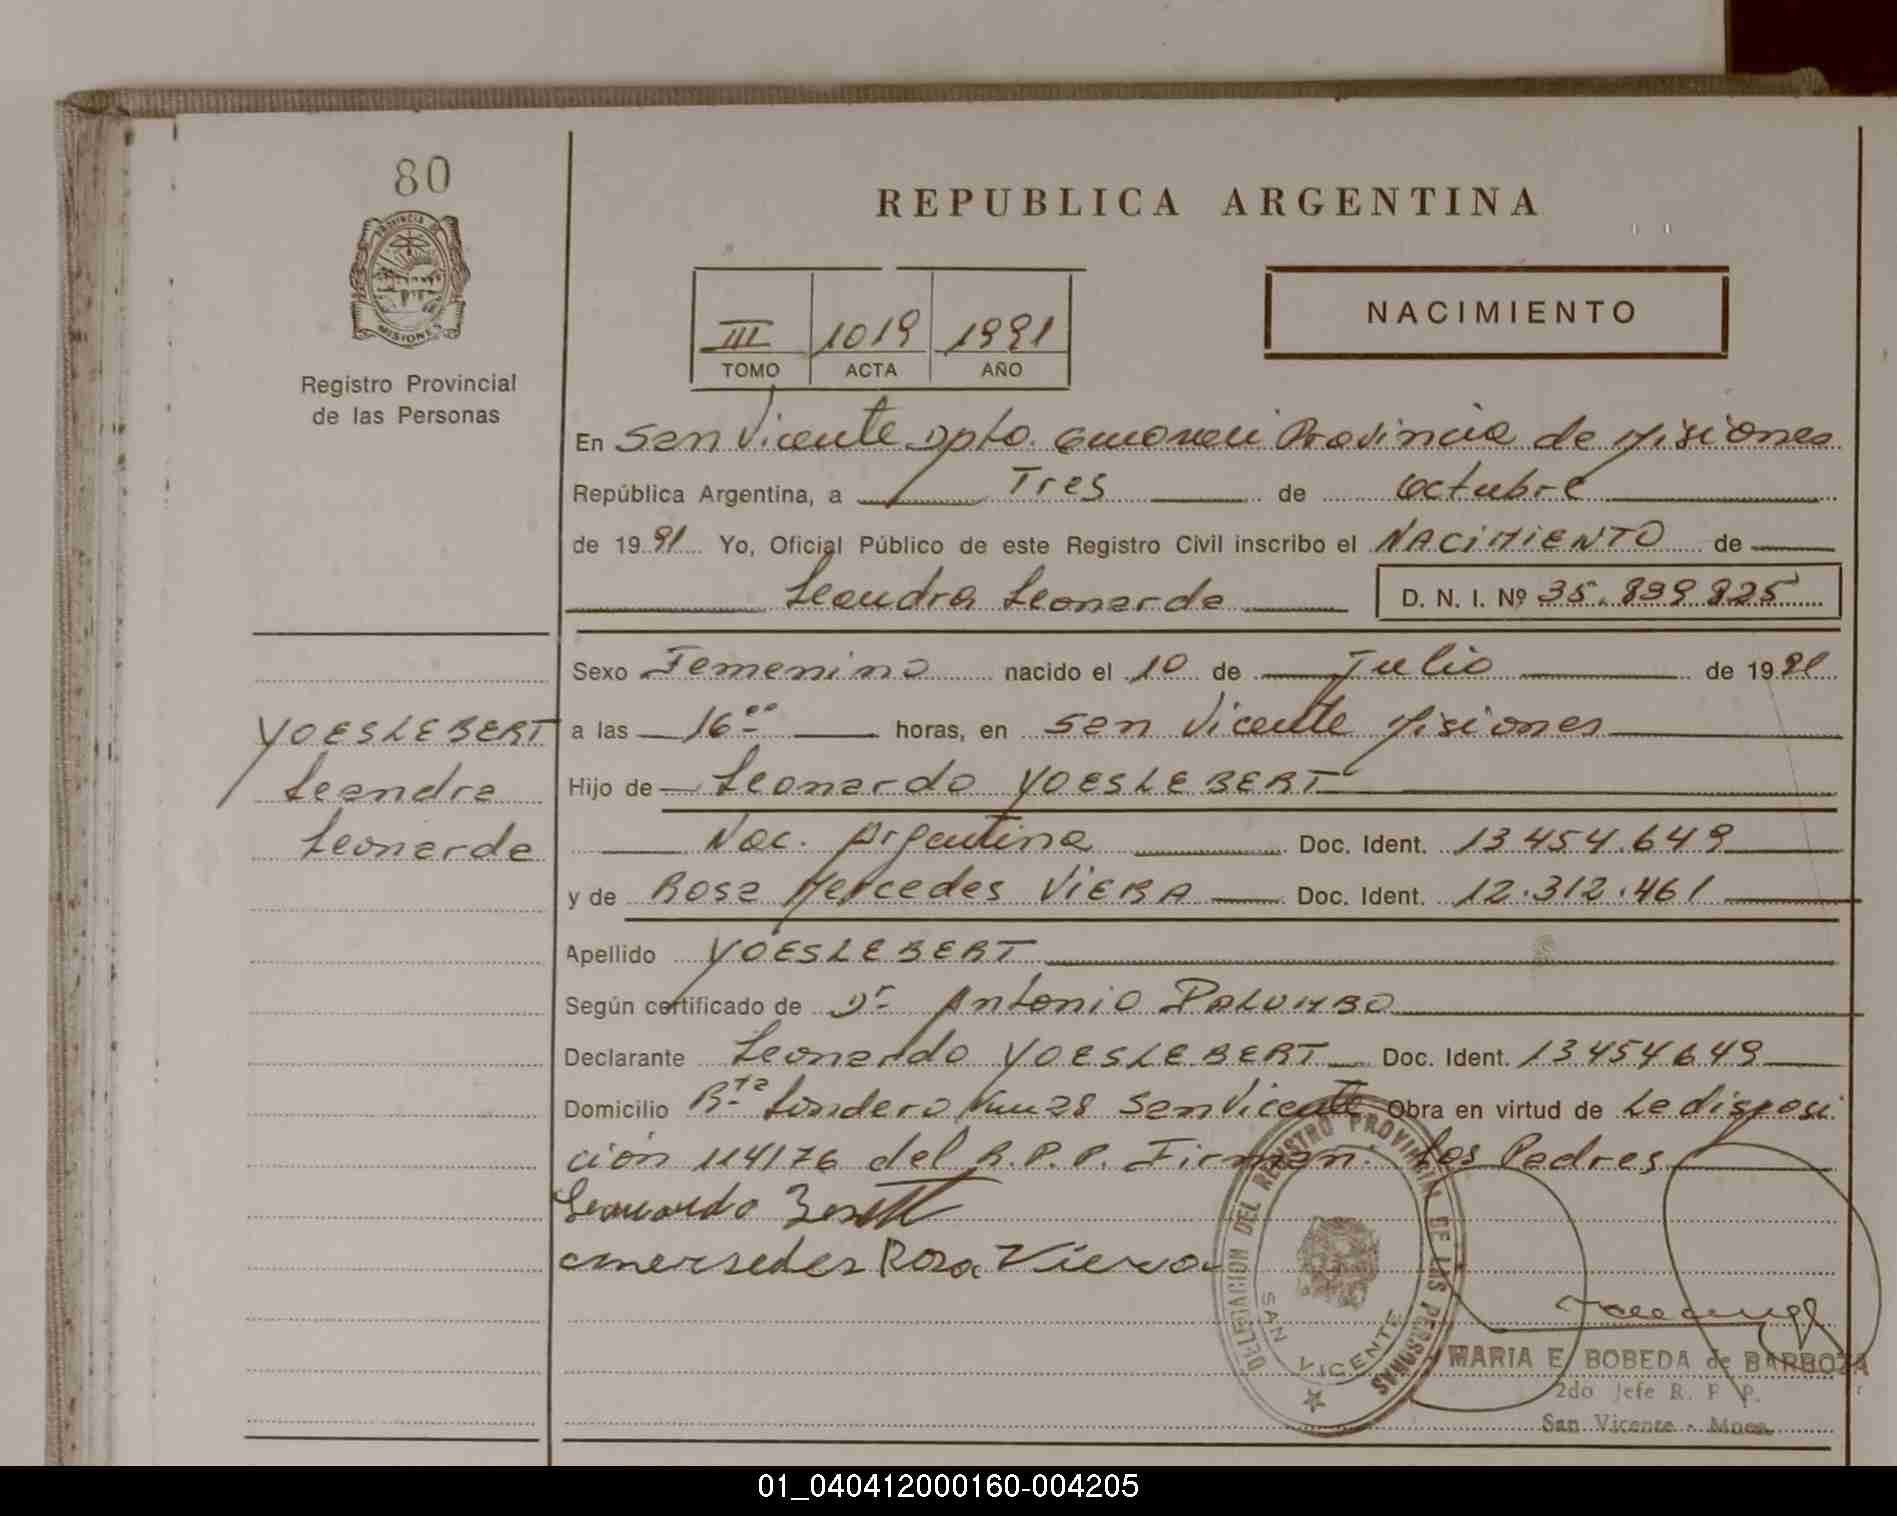 80
PROVINCIA DE
MISIONES
Registro Provincial
de las Personas
REPUBLICA ARGENTINA
III 1019 1991
TOMO ACTA AÑO
NACIMIENTO
En San Vicente Dpto. Guaraní Provincia de Misiones
República Argentina, a Tres de octubre
de 1991 Yo, Oficial Público de este Registro Civil inscribo el NACIMIENTO de
Leandra Leonarda D. N. I. Nº 35.899.825
Sexo Femenino nacido el 10 de Julio de 1991
a las 16 00 horas, en San Vicente Misiones
Hijo de Leonardo YOESLEBERT
Nac. Argentina Doc. Ident. 13.454.649
y de Rosa Mercedes VIERA Doc. Ident. 12.312.461
Apellido YOESLEBERT
Según certificado de Dr Antonio PALUMBO
Declarante Leonardo YOESLEBERT Doc. Ident. 13454649
Domicilio San Vicente Obra en virtud de La disposi
ción 114/76 del R.P.P. Firman. Los Padres
YOESLEBERT
Leandra
Leonarda
Leonardo
mersedes Rosa Viera
DELEGACION DEL REGISTRO PROVINCIAL DE LAS PERSONAS
SAN VICENTE
MARIA E. BOBEDA de BARBOZA
2do Jefe R. P. P.
San Vicente - Mnes.
01_040412000160-004205